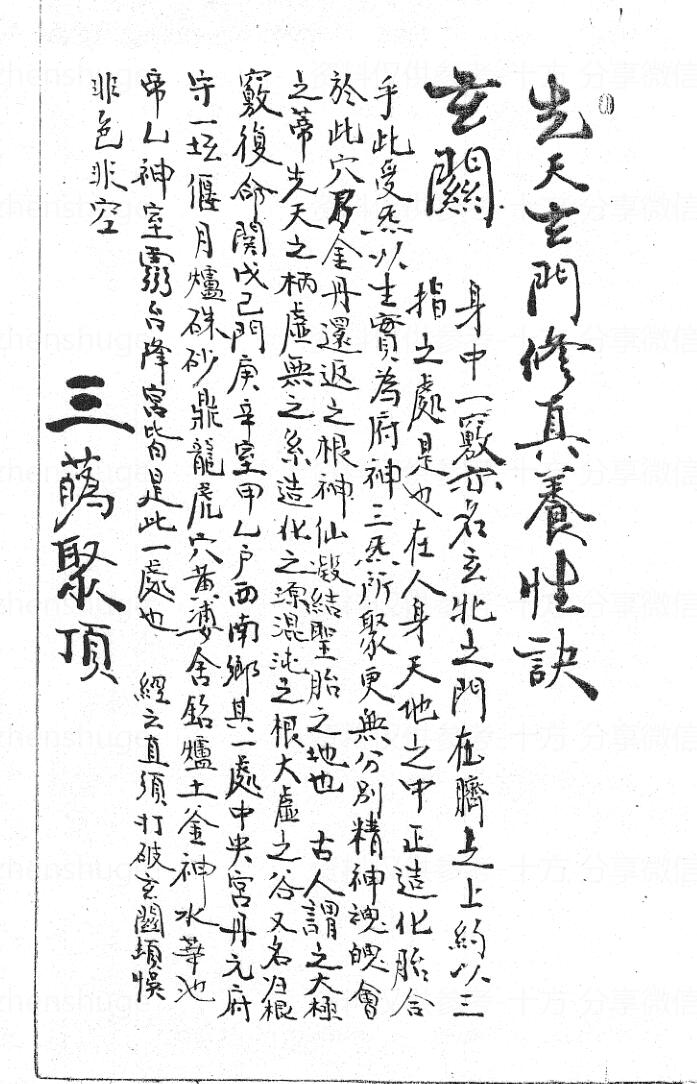 先天玄門修真養性訣
玄關
身中一竅亦名玄牝之門在臍之上約以三
指之處是也在人身天地之中正造化胎合
乎此受炁以生實為府神三炁所聚更無分別精神魂魄會
於此穴乃金丹還返之根神仙凝結聖胎之地也 古人謂之太極
之蒂先天之柄虛無之系造化之源混沌之根太虛之谷又名归根
竅復命關戊己門庚辛室甲乙户西南鄉真一處中央宮丹元府
守一坛偃月爐硃砂鼎龍虎穴黃婆舍鉛爐土釜神水華池
帝乙神室靈台降宮皆是此一處也 經云直須打破玄關頓悞
非色非空
三花聚頂